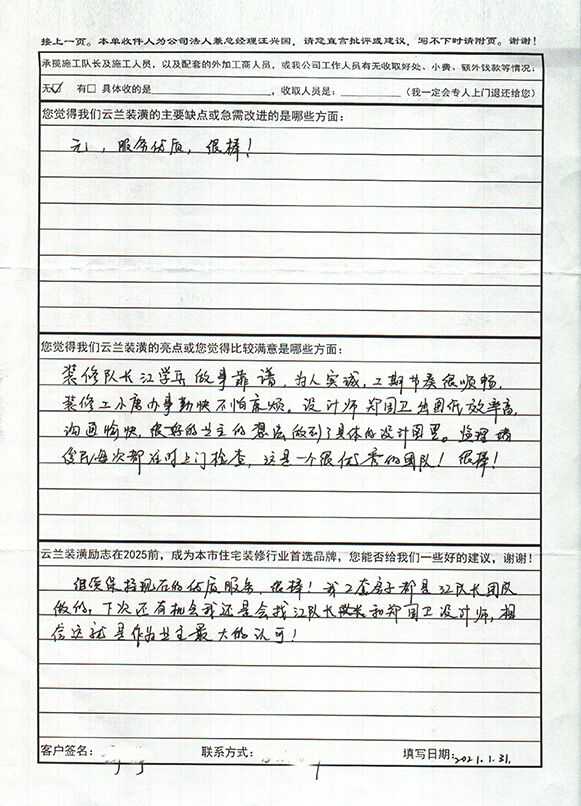 接上一页。本单收件人为公司法人兼总经理汪兴国，请您直言批评或建议，写不下时请附页。谢谢！
承揽施工队长及施工人员，以及配套的外加工商人员，或我公司工作人员有无收取好处、小费、额外钱款等情况：
无☑ 有□ 具体收的是＿＿＿＿＿＿＿＿＿＿，收取人员是：＿＿＿＿＿（我一定会专人上门退还给您）
您觉得我们云兰装潢的主要缺点或急需改进的是哪些方面：
无，服务优质，很棒！
您觉得我们云兰装潢的亮点或您觉得比较满意是哪些方面：
装修队长江学兵做事靠谱，为人实诚，工期节奏很顺畅，
装修工小唐办事勤快不怕麻烦。设计师郑国卫出图纸效率高，
沟通愉快，很好的业主的想法做到了具体的设计图里。监理
每次都准时上门检查，这是一个很优秀的团队！很棒！
云兰装潢励志在2025前，成为本市住宅装修行业首选品牌，您能否给我们一些好的建议，谢谢！
继续保持现在的优质服务，很棒！我2套房子都是江队长团队
做的，下次还有机会我还是会找江队长和郑国卫设计师，相
信这就是作为业主最大的认可！
客户签名： 联系方式： 填写日期：2021.1.31.